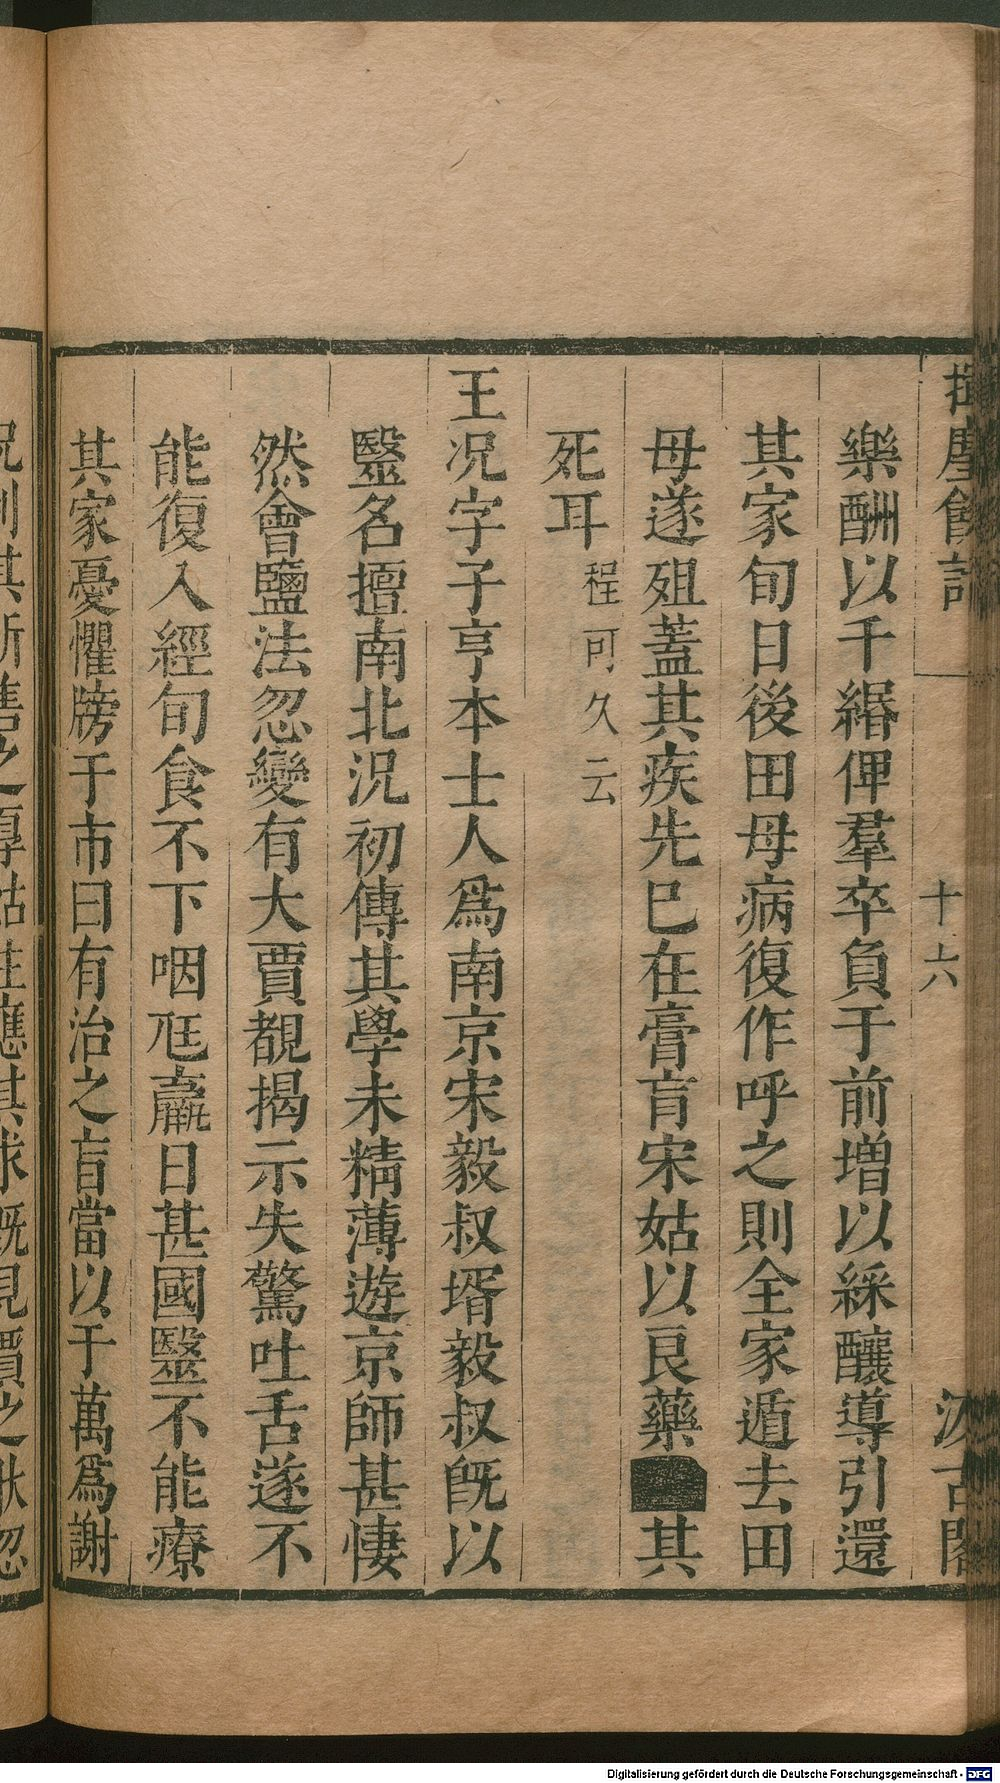 揮麈餘話
十六
汲古閣
樂酬以千緡俾羣卒負于前增以綵釀導引還
其家旬日後田母病復作呼之則全家遁去田
母遂殂蓋其疾先巳在膏肓宋姑以良藥■其
死耳程可久云
王况字子亨本士人爲南京宋毅叔壻毅叔旣以
醫名擅南北况初傳其學未精薄遊京師甚悽
然會鹽法忽變有大賈覩揭示失驚吐舌遂不
能復入經旬食不下咽尫羸日甚國醫不能療
其家憂懼牓于市曰有治之者當以于萬爲謝
况利其所售之厚姑往應其求旣見賈之狀忽
Digitalisierung gefördert durch die Deutsche Forschungsgemeinschaft - DFG